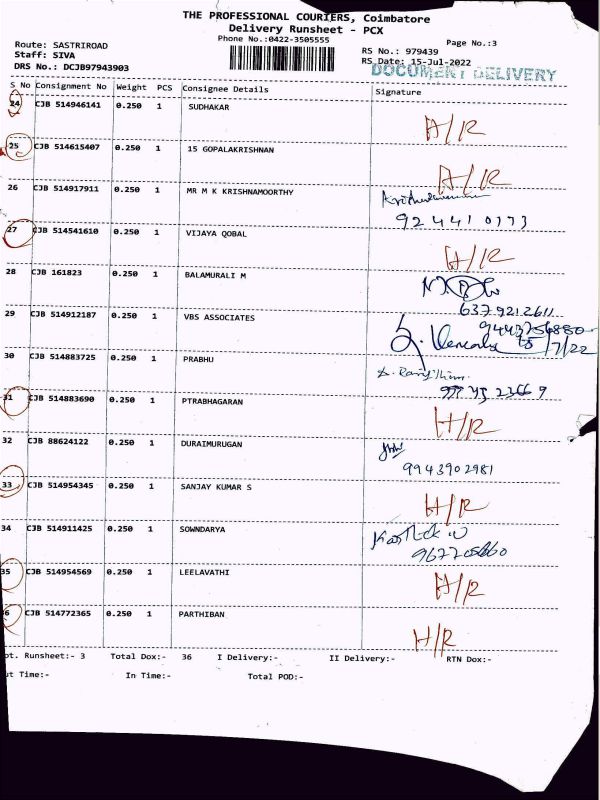 THE PROFESSIONAL COURIERS, Coimbatore
Delivery Runsheet - PCX
Phone No.:0422-3505555
Page No.:3
Route: SASTRIROAD
Staff: SIVA
DRS No.: DCJB97943903
RS No.: 979439
RS Date: 15-Jul-2022
DOCUMENT DELIVERY
S No Consignment No Weight PCS Consignee Details Signature
24 CJB 514946141 0.250 1 SUDHAKAR H/R
25 CJB 514615407 0.250 1 15 GOPALAKRISHNAN H/R
26 CJB 514917911 0.250 1 MR M K KRISHNAMOORTHY
92441 0173
27 CJB 514541610 0.250 1 VIJAYA QOBAL H/R
28 CJB 161823 0.250 1 BALAMURALI M
6379212611
29 CJB 514912187 0.250 1 VBS ASSOCIATES 9443756880
15/7/22
30 CJB 514883725 0.250 1 PRABHU
31 CJB 514883690 0.250 1 PTRABHAGARAN H/R
32 CJB 88624122 0.250 1 DURAIMURUGAN
9943902981
33 CJB 514954345 0.250 1 SANJAY KUMAR S H/R
34 CJB 514911425 0.250 1 SOWNDARYA
35 CJB 514954569 0.250 1 LEELAVATHI H/R
36 CJB 514772365 0.250 1 PARTHIBAN H/R
ot. Runsheet:- 3 Total Dox:- 36 I Delivery:- II Delivery:- RTN Dox:-
ut Time:- In Time:- Total POD:-